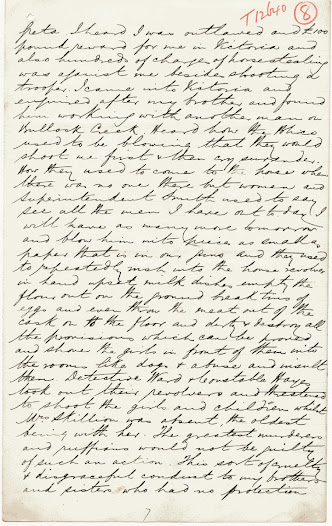 T12640 8
peta. I heard I was outlawed and £100
pound reward for me in Victoria and
also hundreds of charges of horsestealing
was against me beside shooting a
trooper. I came into Victoria and
enquired after my brother and found
him working with another man on
Bullock Creek Heard how the Police
used to be blowing that they would
shoot me first & then cry surrender.
How they used to come to the house when
there was no one there but women and
Superintendent Smith used to say
see all the men I have out to day I
will have as many more tomorrow
and blow him into pieces as small as
paper that is in our guns and they used
to repeatedly rush into the house revolver
in hand upset milk dishes empty the
flour out on the ground break tins of
eggs and even throw the meat out of the
cask on to the floor and dirty & destroy all
the provisions which can be proved
and shove the girls in front of them into
the rooms like dogs & abuse and insult
them. Detective Ward & Constable Hayes
took out their revolvers and threatened
to shoot the girls and children whilst
Mrs Skillion was absent the oldest
being with her. The greatest murderers
and ruffians would not be guilty
of such an action. This sort of cruelty
& disgraceful conduct to my brothers
and sisters who had no protection
7